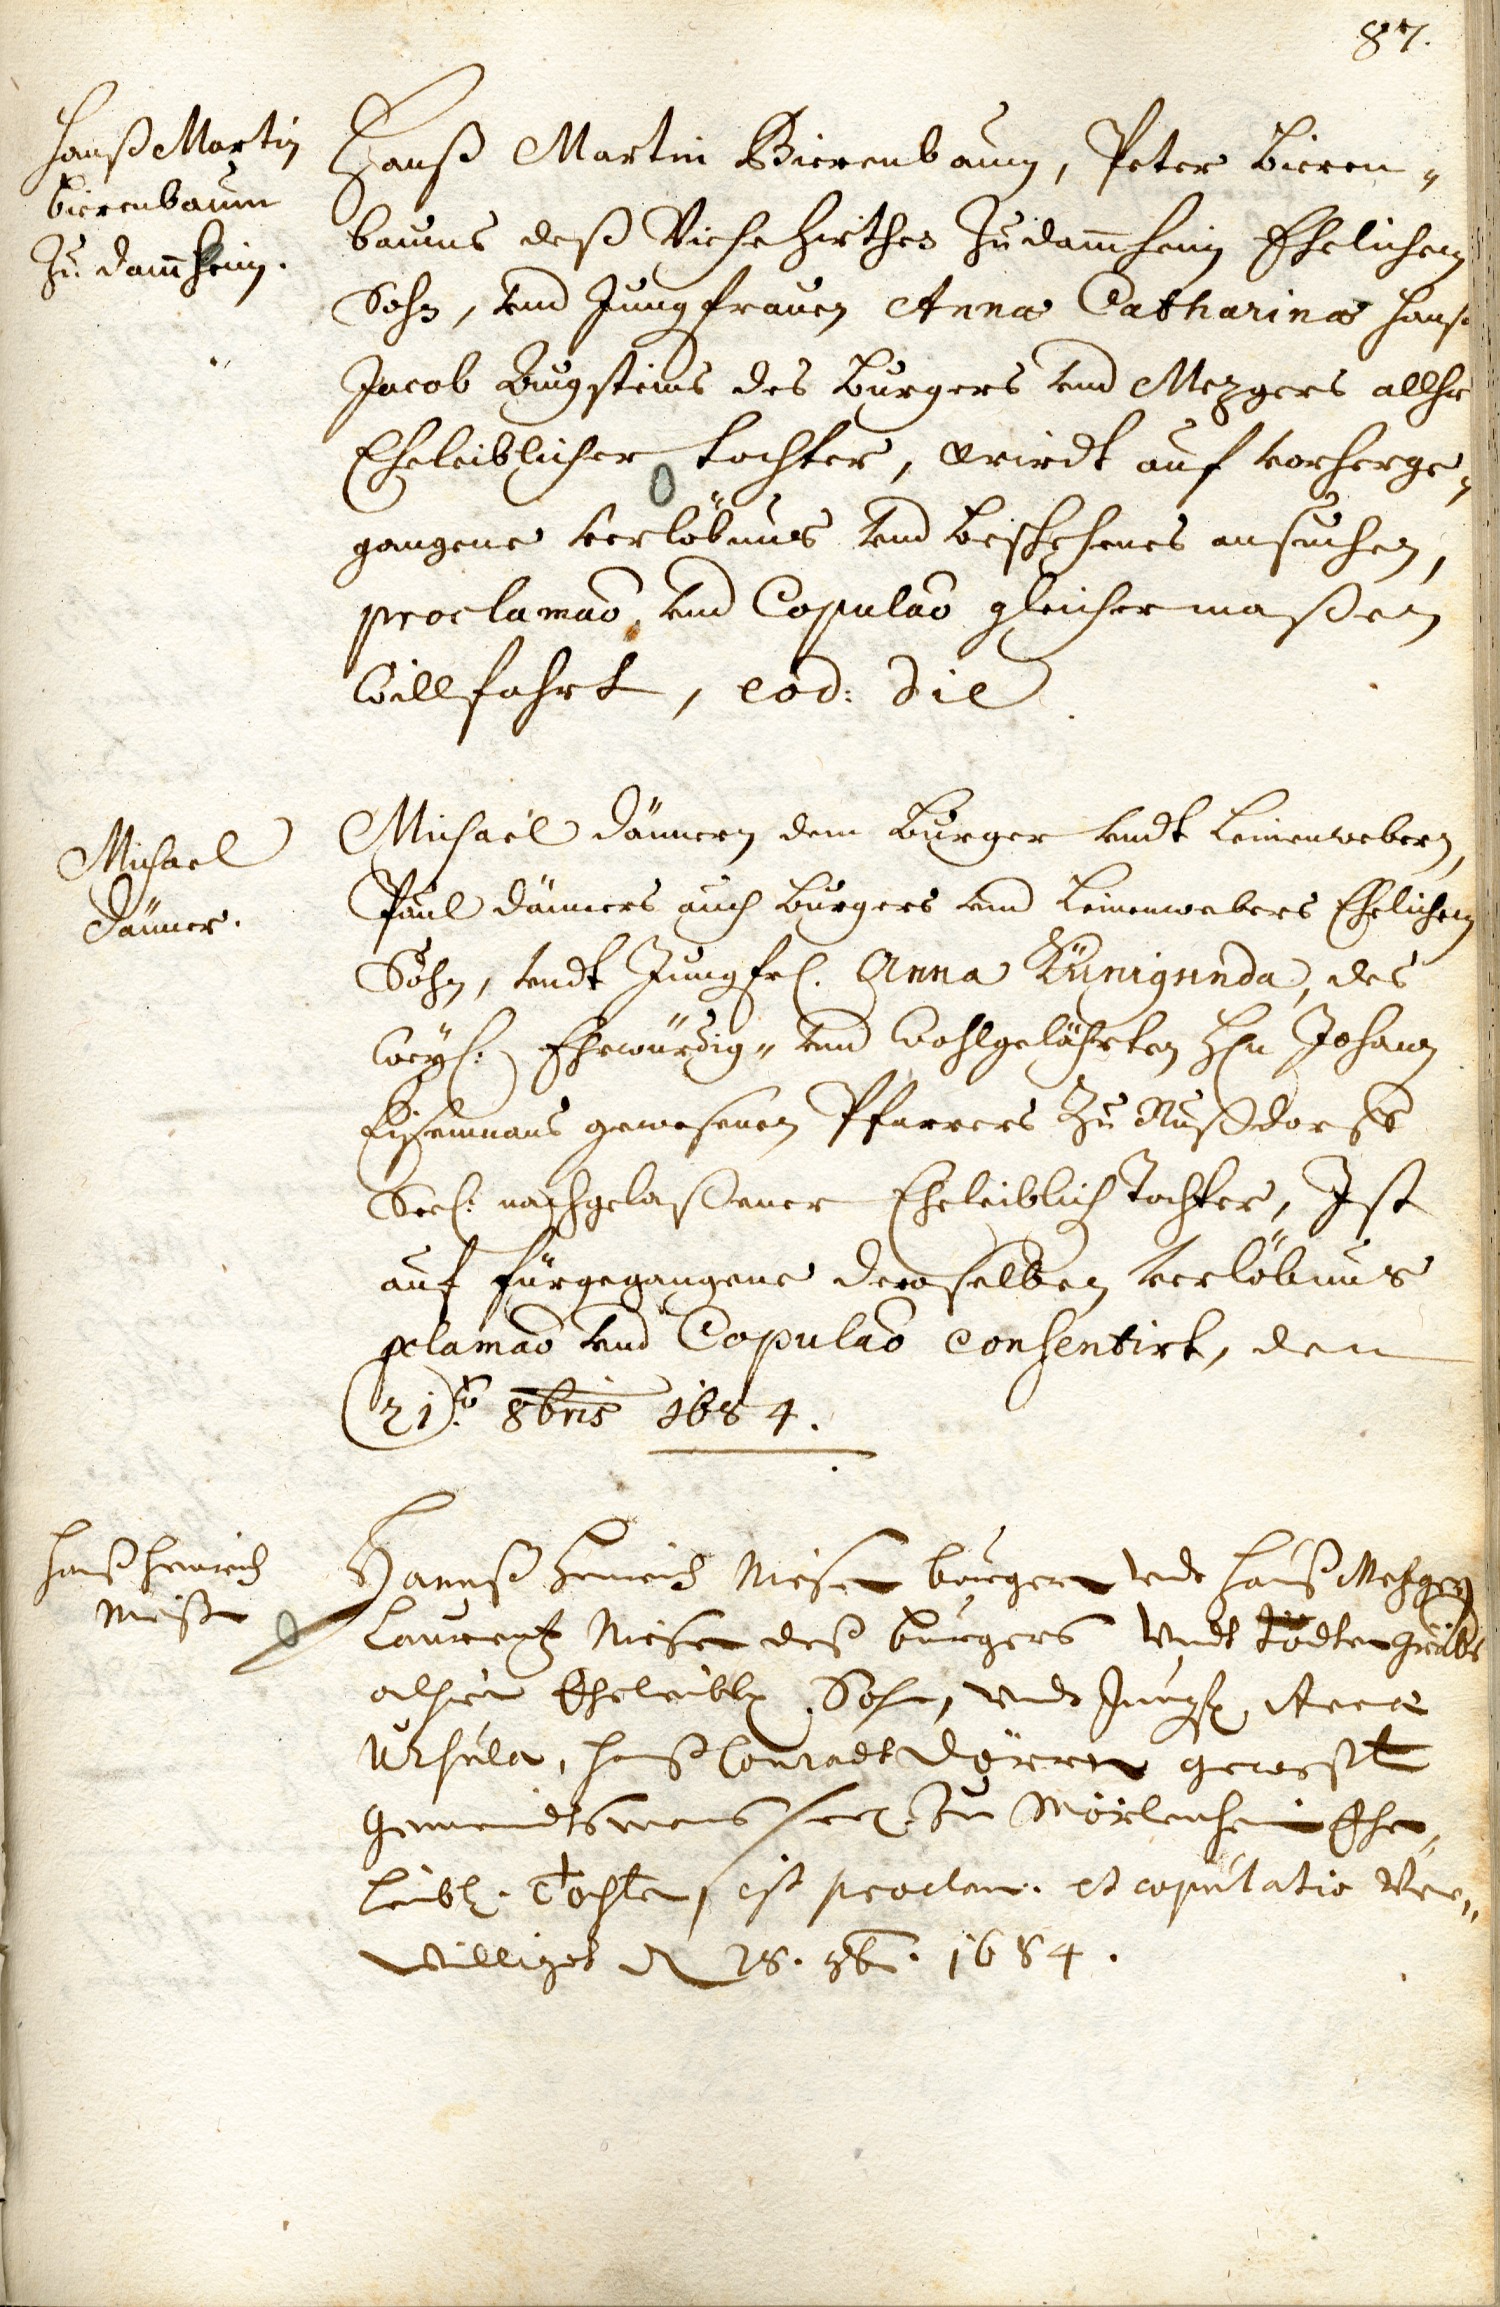 87.
Hanß Martin
Bierenbaum
Zu dam̄heim.
Hanß Martin Bierenbaum, Peter Bieren„
baums deß Viehe Hirthes Zu dam̄heim Ehelichem
Sohn, vnd Jungfrauen Annæ Catharinæ Hanß
Jacob Augsteins des Burgers vnd Mezgers allhie
Eheleiblicher tochter, wirdt auf vorherge„
gangene verlöbnus vnd beschehenes ansuchen,
proclamaō, vnd Copulaō gleichermaßen
Willfahrt, eod: die
Michael
Dänner.
Michaël Dännern dem Burger vndt Leinenwebern,
Paul Dänners auch Burgers vnd Leinenwebers Ehelichem
Sohn, vndt Jungfr. Anna Künigunda, des
Weyl: Ehrwürdig„ vnd Wohlgelährten Hn Johann
Eisenmans gewesenen Pfarrers Zu Nußdorff
Seel: nachgelaßener Eheleiblich Tochter, Ist
auf fürgegangene deroselben verlöbnus
pclamaō vnd Copulaō consentirt, den
21.ᵗᵒ 8bris 1684.
Hanß Henrich
Miesen
Hannß Henrich Miesen burgern vnd Hanß Metzgern
Laurentz Miesen deß burgers Vndt Todtengräbers
alhier Eheleibl. Sohn, vnd Jungfr. Anna
Ursula, Hanß Conradt Dörren gewest
Gemeindtsmans seel. Zu Mörlenheim Ehe„
leibl. Tochter, ist proclam. et copulatio Ver„
williget d 28. 8b. 1684.